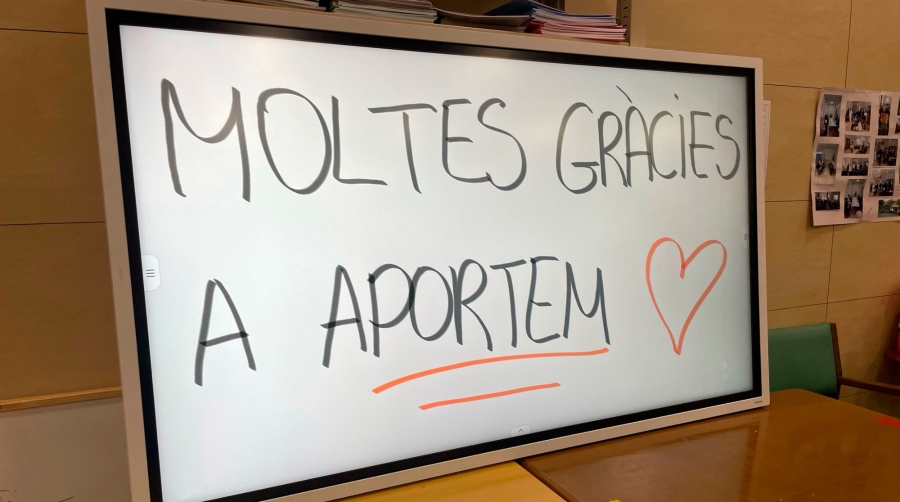 MOLTES GRÀCIES
A APORTEM